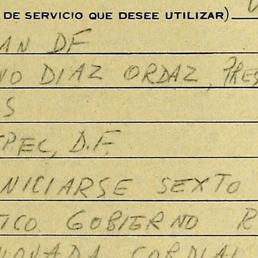 DE SERVICIO QUE DESEE UTILIZAR)
AN DF
NO DIAZ ORDAZ, PRES
S
EPEC, D.F.
NICIARSE SEXTO
TICO GOBIERNO R
IONADA CORDIAL